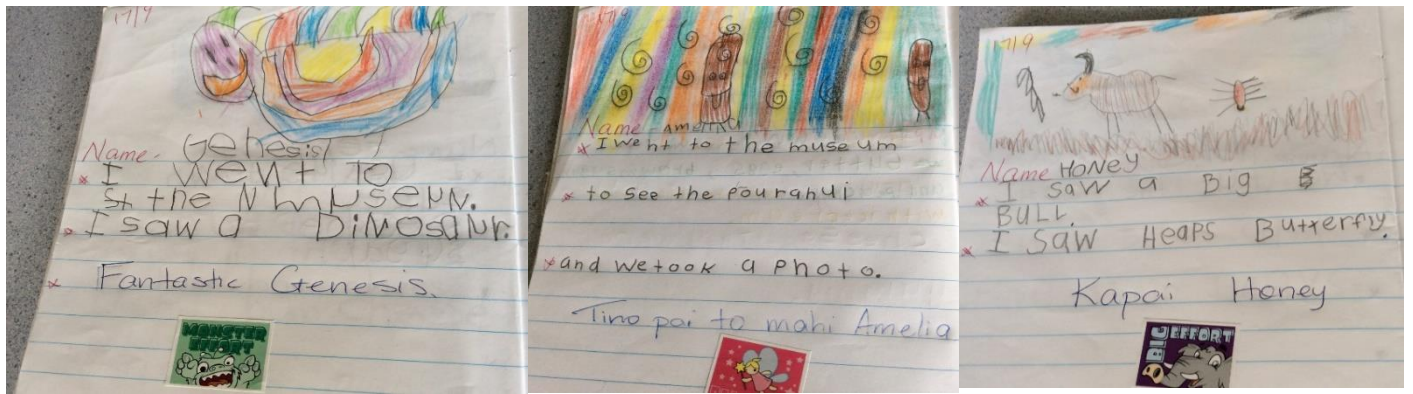 17/9
Name - Genesis
I went To
St the N mmuseum.
I saw a Dinosaur.
Fantastic Genesis.
MONSTER
EFFORT
17/9
Name - Amelia
I went to the museum
to see the pouranui
and we took a photo.
Tino pai to mahi Amelia
17/9
Name HONEY
I saw a Big
BULL.
I SAW HEAPS Butterfly.
Kapai Honey
BIG EFFORT